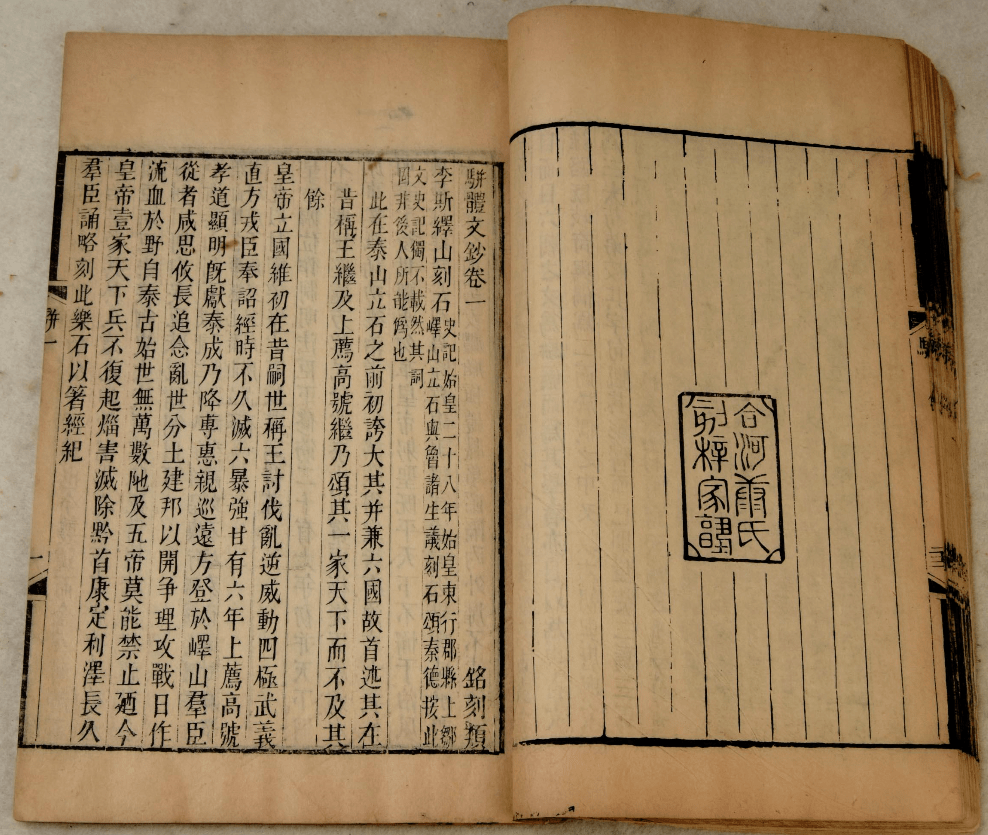 合河康氏
刻梓家塾
駢體文鈔卷一 銘刻類
李斯繹山刻石 史記始皇二十八年始皇東行郡縣上鄒
嶧山立石與魯諸生議刻石頌秦德按此
文史記獨不載然其詞
固非後人所能僞也
此在泰山立石之前初誇大其并兼六國故首述其在
昔稱王繼及上薦高號繼乃頌其一家天下而不及其
餘
皇帝立國維初在昔嗣世稱王討伐亂逆威動四極武義
直方戎臣奉詔經時不久滅六暴強廿有六年上薦高號
孝道顯明旣獻泰成乃降專惠親巡遠方登於嶧山羣臣
從者咸思攸長追念亂世分土建邦以開爭理攻戰日作
流血於野自泰古始世無萬數阤及五帝莫能禁止廼今
皇帝壹家天下兵不復起害滅除黔首康定利澤長久
羣臣誦略刻此樂石以箸經紀
一